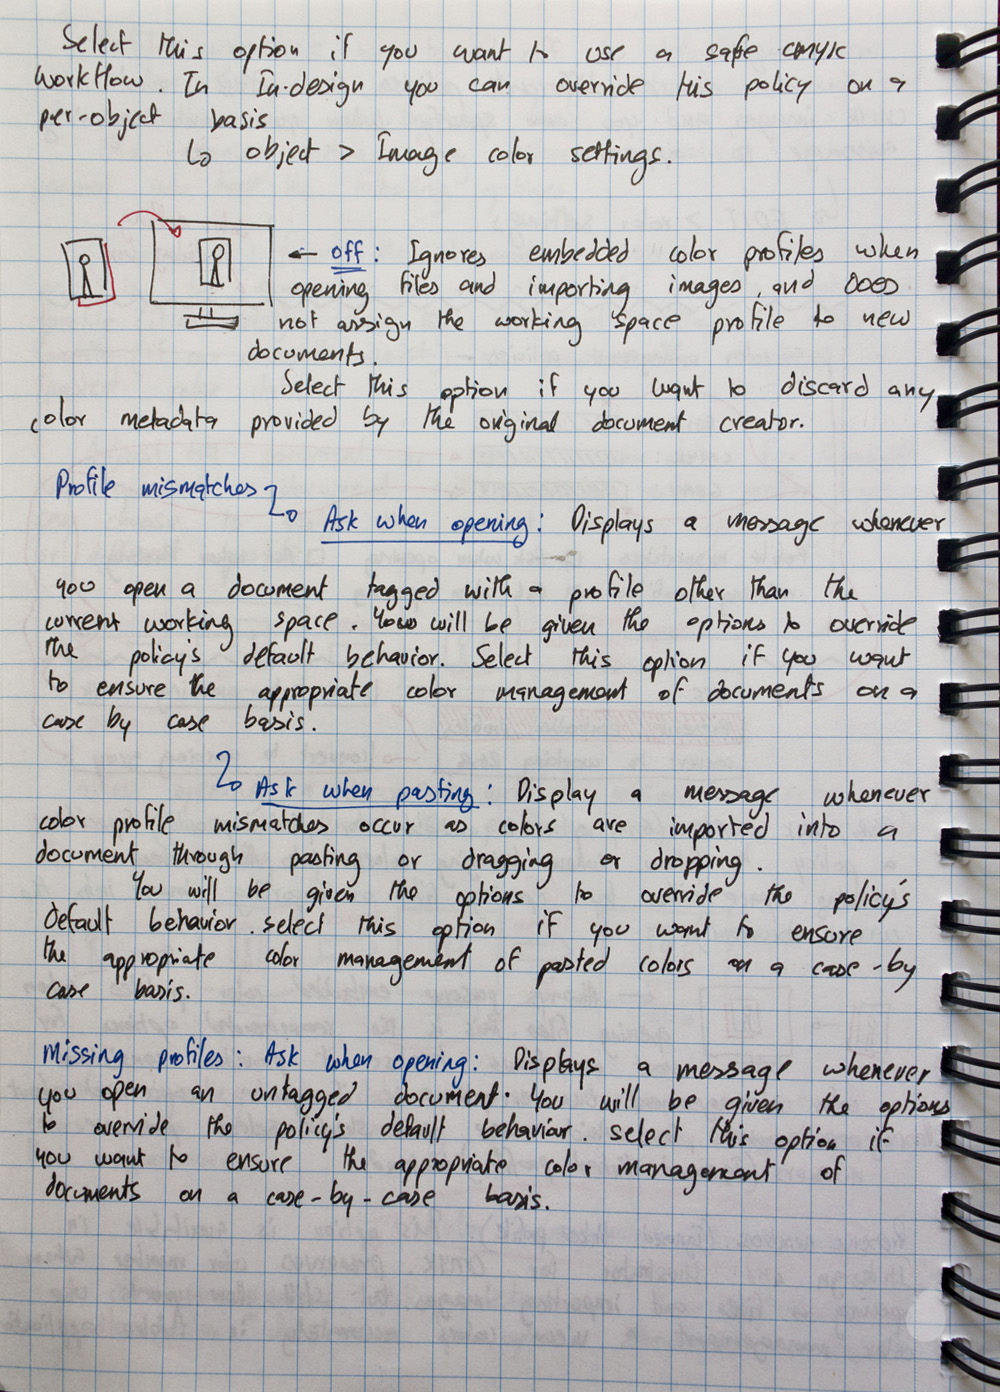 Select this option if you want to use a safe cmyk
workflow. In In-design you can override this policy on a
per-object basis
↳ object > Image color settings.
← Off: Ignores embedded color profiles when
opening files and importing images, and does
not assign the working space profile to new
documents.
Select this option if you want to discard any
color metadata provided by the original document creator.
Profile mismatches
Ask when opening: Displays a message whenever
you open a document tagged with a profile other than the
current working space. You will be given the options to override
the policy's default behavior. Select this option if you want
to ensure the appropriate color management of documents on a
case by case basis.
Ask when pasting: Display a message whenever
color profile mismatches occur as colors are imported into a
document through pasting or dragging or dropping.
You will be given the options to override the policy's
default behavior. select this option if you want to ensure
the appropriate color management of pasted colors on a case-by
case basis.
Missing profiles: Ask when opening: Displays a message whenever
you open an untagged document. You will be given the options
to override the policy's default behaviar. select this option if
you want to ensure the appropriate color management of
documents on a case-by-case basis.